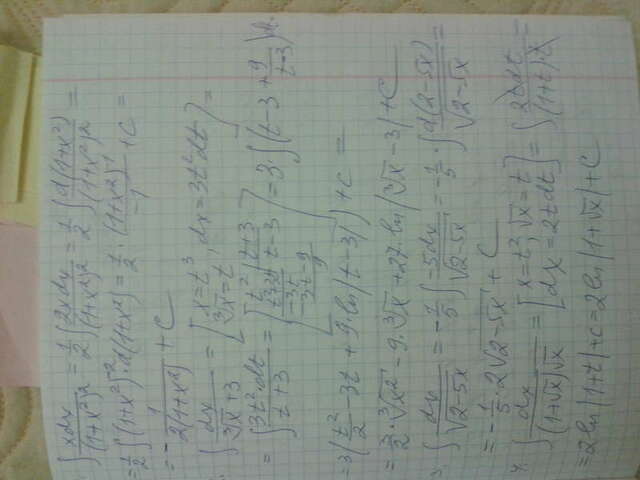 ∫ xdx/(1+x²)² = 1/2 ∫ 2xdx/(1+x²)² = 1/2 ∫ d(1+x²)/(1+x²)² =
= 1/2 ∫ (1+x²)⁻² · d(1+x²) = 1/2 · (1+x²)⁻¹/-1 + C =
= - 1/2(1+x²) + C
∫ dx/∛x+3 = [ x=t³ ∛x=t, dx=3t²dt ] =
= ∫ 3t²·dt/t+3 = = 3·∫ (t-3 + 9/t+3)
= 3( t²/2 - 3t + 9·ln|t-3|) + C =
= 3/2·∛x² - 9·∛x + 27·ln|∛x - 3| + C
3. ∫ dx/√2-5x = -1/5 ∫ -5dx/√2-5x = -1/5·∫ d(2-5x)/√2-5x =
= -1/5·2√2-5x + C
4. ∫ dx/(1+√x)√x = [ x=t², √x=t dx=2tdt ] = ∫ 2tdt/(1+t)·t =
= 2ln|1+t| + C = 2ln|1+√x| + C